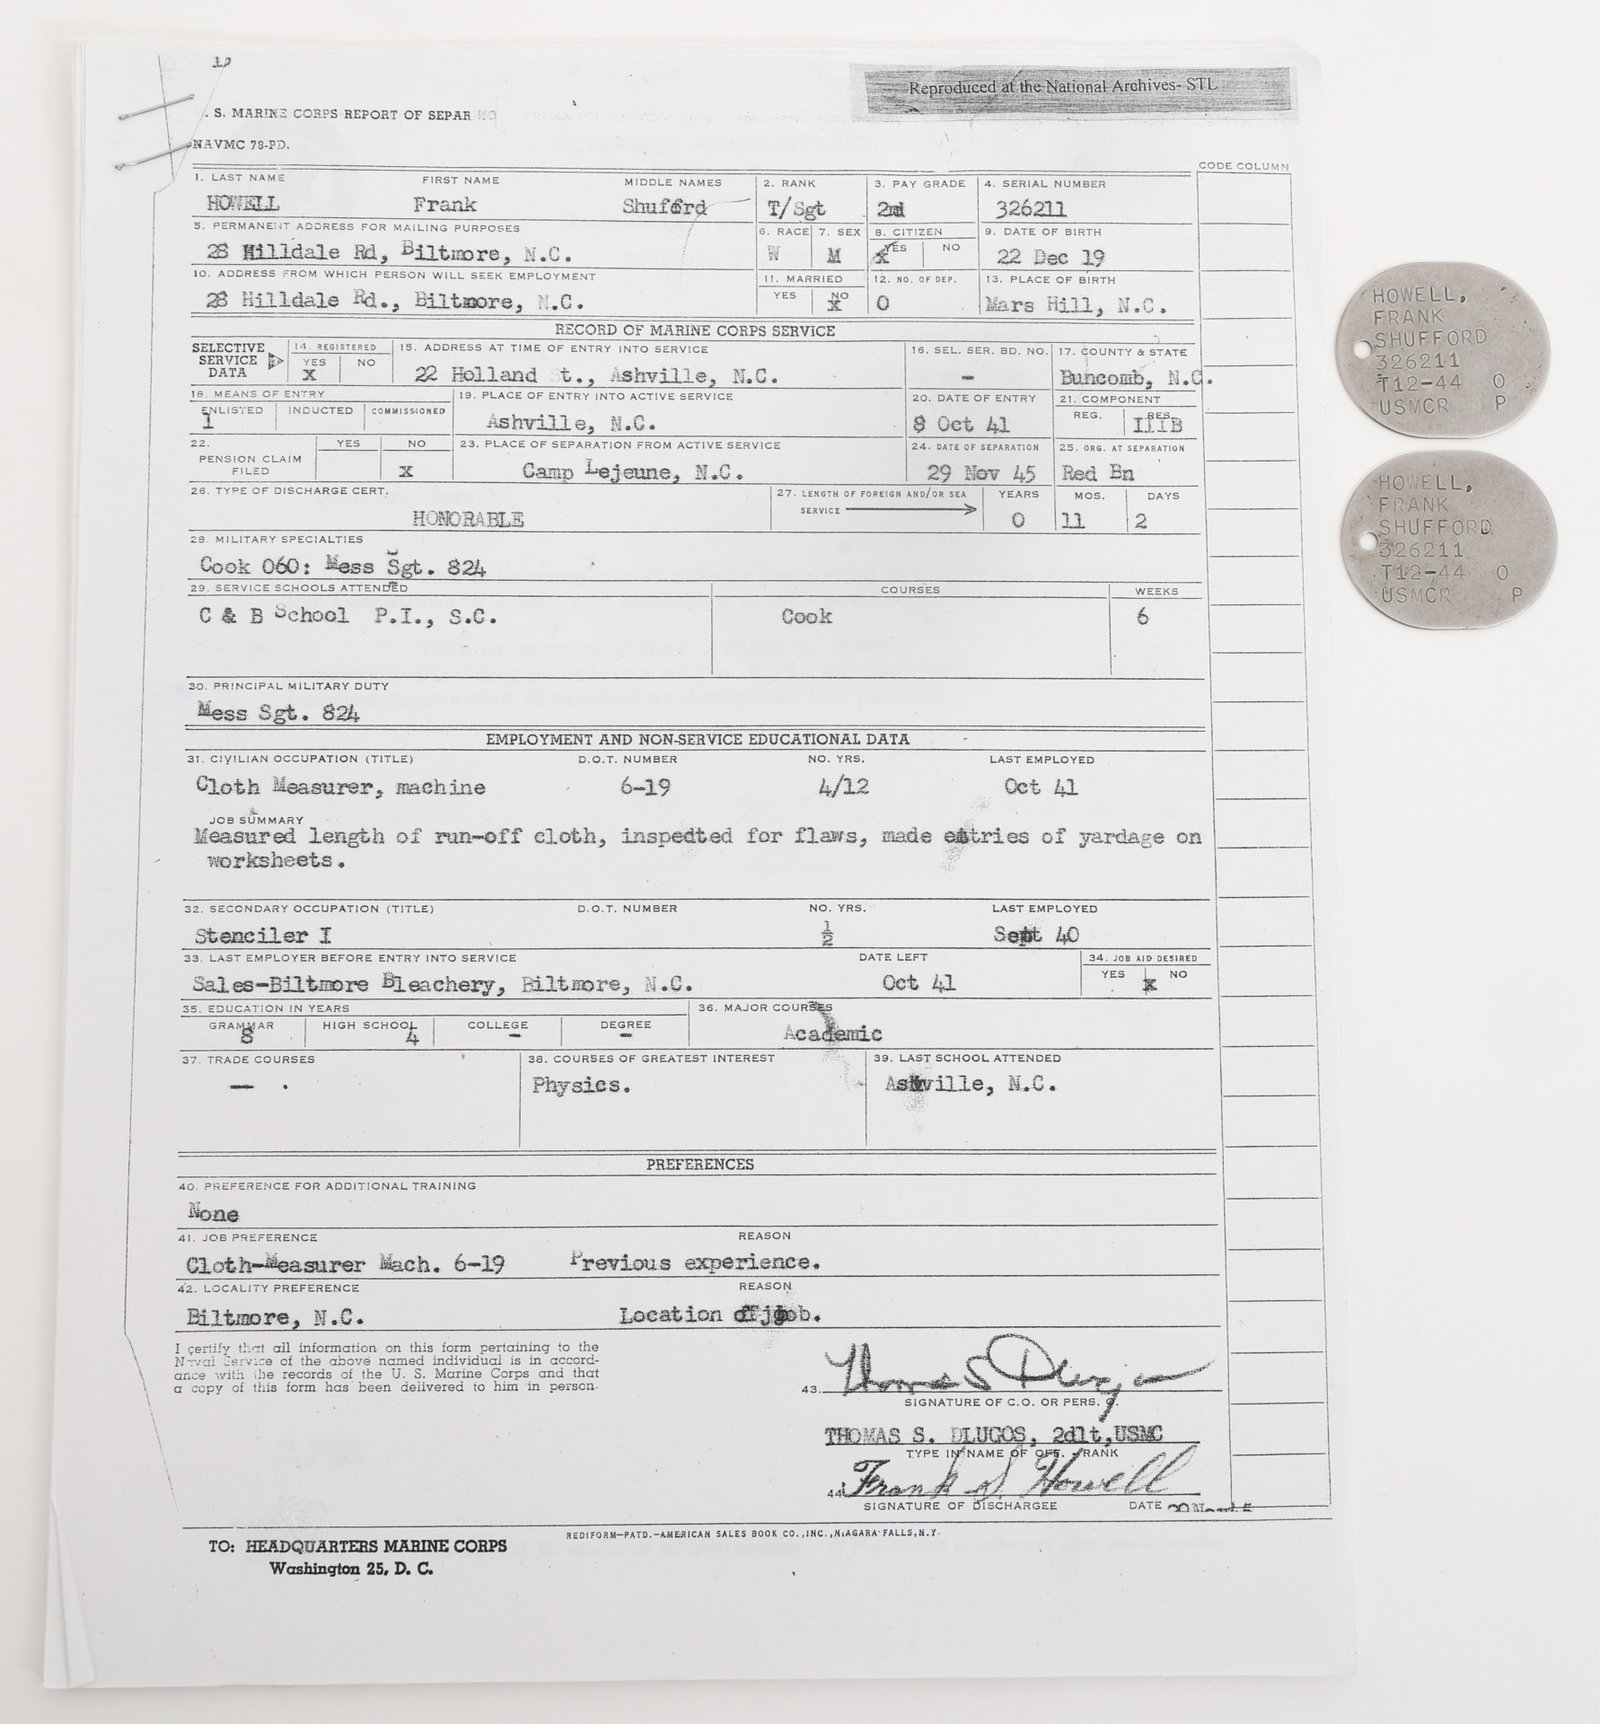 Reproduced at the National Archives- STL
. S. MARINE CORPS REPORT OF SEPAR
NAVMC 78-PD.
CODE COLUMN
1. LAST NAME FIRST NAME MIDDLE NAMES 2. RANK 3. PAY GRADE 4. SERIAL NUMBER
HOWELL Frank Shufford T/Sgt 2nd 326211
5. PERMANENT ADDRESS FOR MAILING PURPOSES 6. RACE 7. SEX 8. CITIZEN YES NO 9. DATE OF BIRTH
28 Hilldale Rd, Biltmore, N.C. W M x 22 Dec 19
10. ADDRESS FROM WHICH PERSON WILL SEEK EMPLOYMENT 11. MARRIED YES NO 12. NO. OF DEP. 13. PLACE OF BIRTH
28 Hilldale Rd., Biltmore, N.C. x 0 Mars Hill, N.C.
RECORD OF MARINE CORPS SERVICE
SELECTIVE SERVICE DATA 14. REGISTERED YES NO 15. ADDRESS AT TIME OF ENTRY INTO SERVICE 16. SEL. SER. BD. NO. 17. COUNTY & STATE
X 22 Holland t., Ashville, N.C. - Buncomb, N.C.
18. MEANS OF ENTRY 19. PLACE OF ENTRY INTO ACTIVE SERVICE 20. DATE OF ENTRY 21. COMPONENT
ENLISTED INDUCTED COMMISSIONED REG. RES.
1 Ashville, N.C. 8 Oct 41 IIIB
22. PENSION CLAIM FILED YES NO 23. PLACE OF SEPARATION FROM ACTIVE SERVICE 24. DATE OF SEPARATION 25. ORG. AT SEPARATION
x Camp Lejeune, N.C. 29 Nov 45 Red Bn
26. TYPE OF DISCHARGE CERT. 27. LENGTH OF FOREIGN AND/OR SEA SERVICE YEARS MOS. DAYS
HONORABLE 0 11 2
28. MILITARY SPECIALTIES
Cook 060: Mess Sgt. 824
29. SERVICE SCHOOLS ATTENDED COURSES WEEKS
C & B School P.I., S.C. Cook 6
30. PRINCIPAL MILITARY DUTY
Mess Sgt. 824
EMPLOYMENT AND NON-SERVICE EDUCATIONAL DATA
31. CIVILIAN OCCUPATION (TITLE) D.O.T. NUMBER NO. YRS. LAST EMPLOYED
Cloth Measurer, machine 6-19 4/12 Oct 41
JOB SUMMARY
Measured length of run-off cloth, inspedted for flaws, made entries of yardage on
worksheets.
32. SECONDARY OCCUPATION (TITLE) D.O.T. NUMBER NO. YRS. LAST EMPLOYED
Stenciler I ½ Sept 40
33. LAST EMPLOYER BEFORE ENTRY INTO SERVICE DATE LEFT 34. JOB AID DESIRED
YES NO
Sales-Biltmore Bleachery, Biltmore, N.C. Oct 41 x
35. EDUCATION IN YEARS 36. MAJOR COURSES
GRAMMAR HIGH SCHOOL COLLEGE DEGREE
8 4 - - Academic
37. TRADE COURSES 38. COURSES OF GREATEST INTEREST 39. LAST SCHOOL ATTENDED
- . Physics. Ashville, N.C.
PREFERENCES
40. PREFERENCE FOR ADDITIONAL TRAINING
None
41. JOB PREFERENCE REASON
Cloth-Measurer Mach. 6-19 Previous experience.
42. LOCALITY PREFERENCE REASON
Biltmore, N.C. Location of job.
I certify that all information on this form pertaining to the
Naval Service of the above named individual is in accord-
ance with the records of the U. S. Marine Corps and that
a copy of this form has been delivered to him in person.
43. Thomas S Dlugos
SIGNATURE OF C.O. OR PERS. O.
THOMAS S. DLUGOS, 2dlt,USMC
TYPE IN NAME OF OFF. - RANK
44. Frank S. Howell
SIGNATURE OF DISCHARGEE DATE
REDIFORM—PATD.—AMERICAN SALES BOOK CO.,INC.,NIAGARA FALLS,N.Y.
TO: HEADQUARTERS MARINE CORPS
Washington 25, D. C.
HOWELL,
FRANK
SHUFFORD
326211
T12-44 O
USMCR P
HOWELL,
FRANK
SHUFFORD
326211
T12-44 O
USMCR P